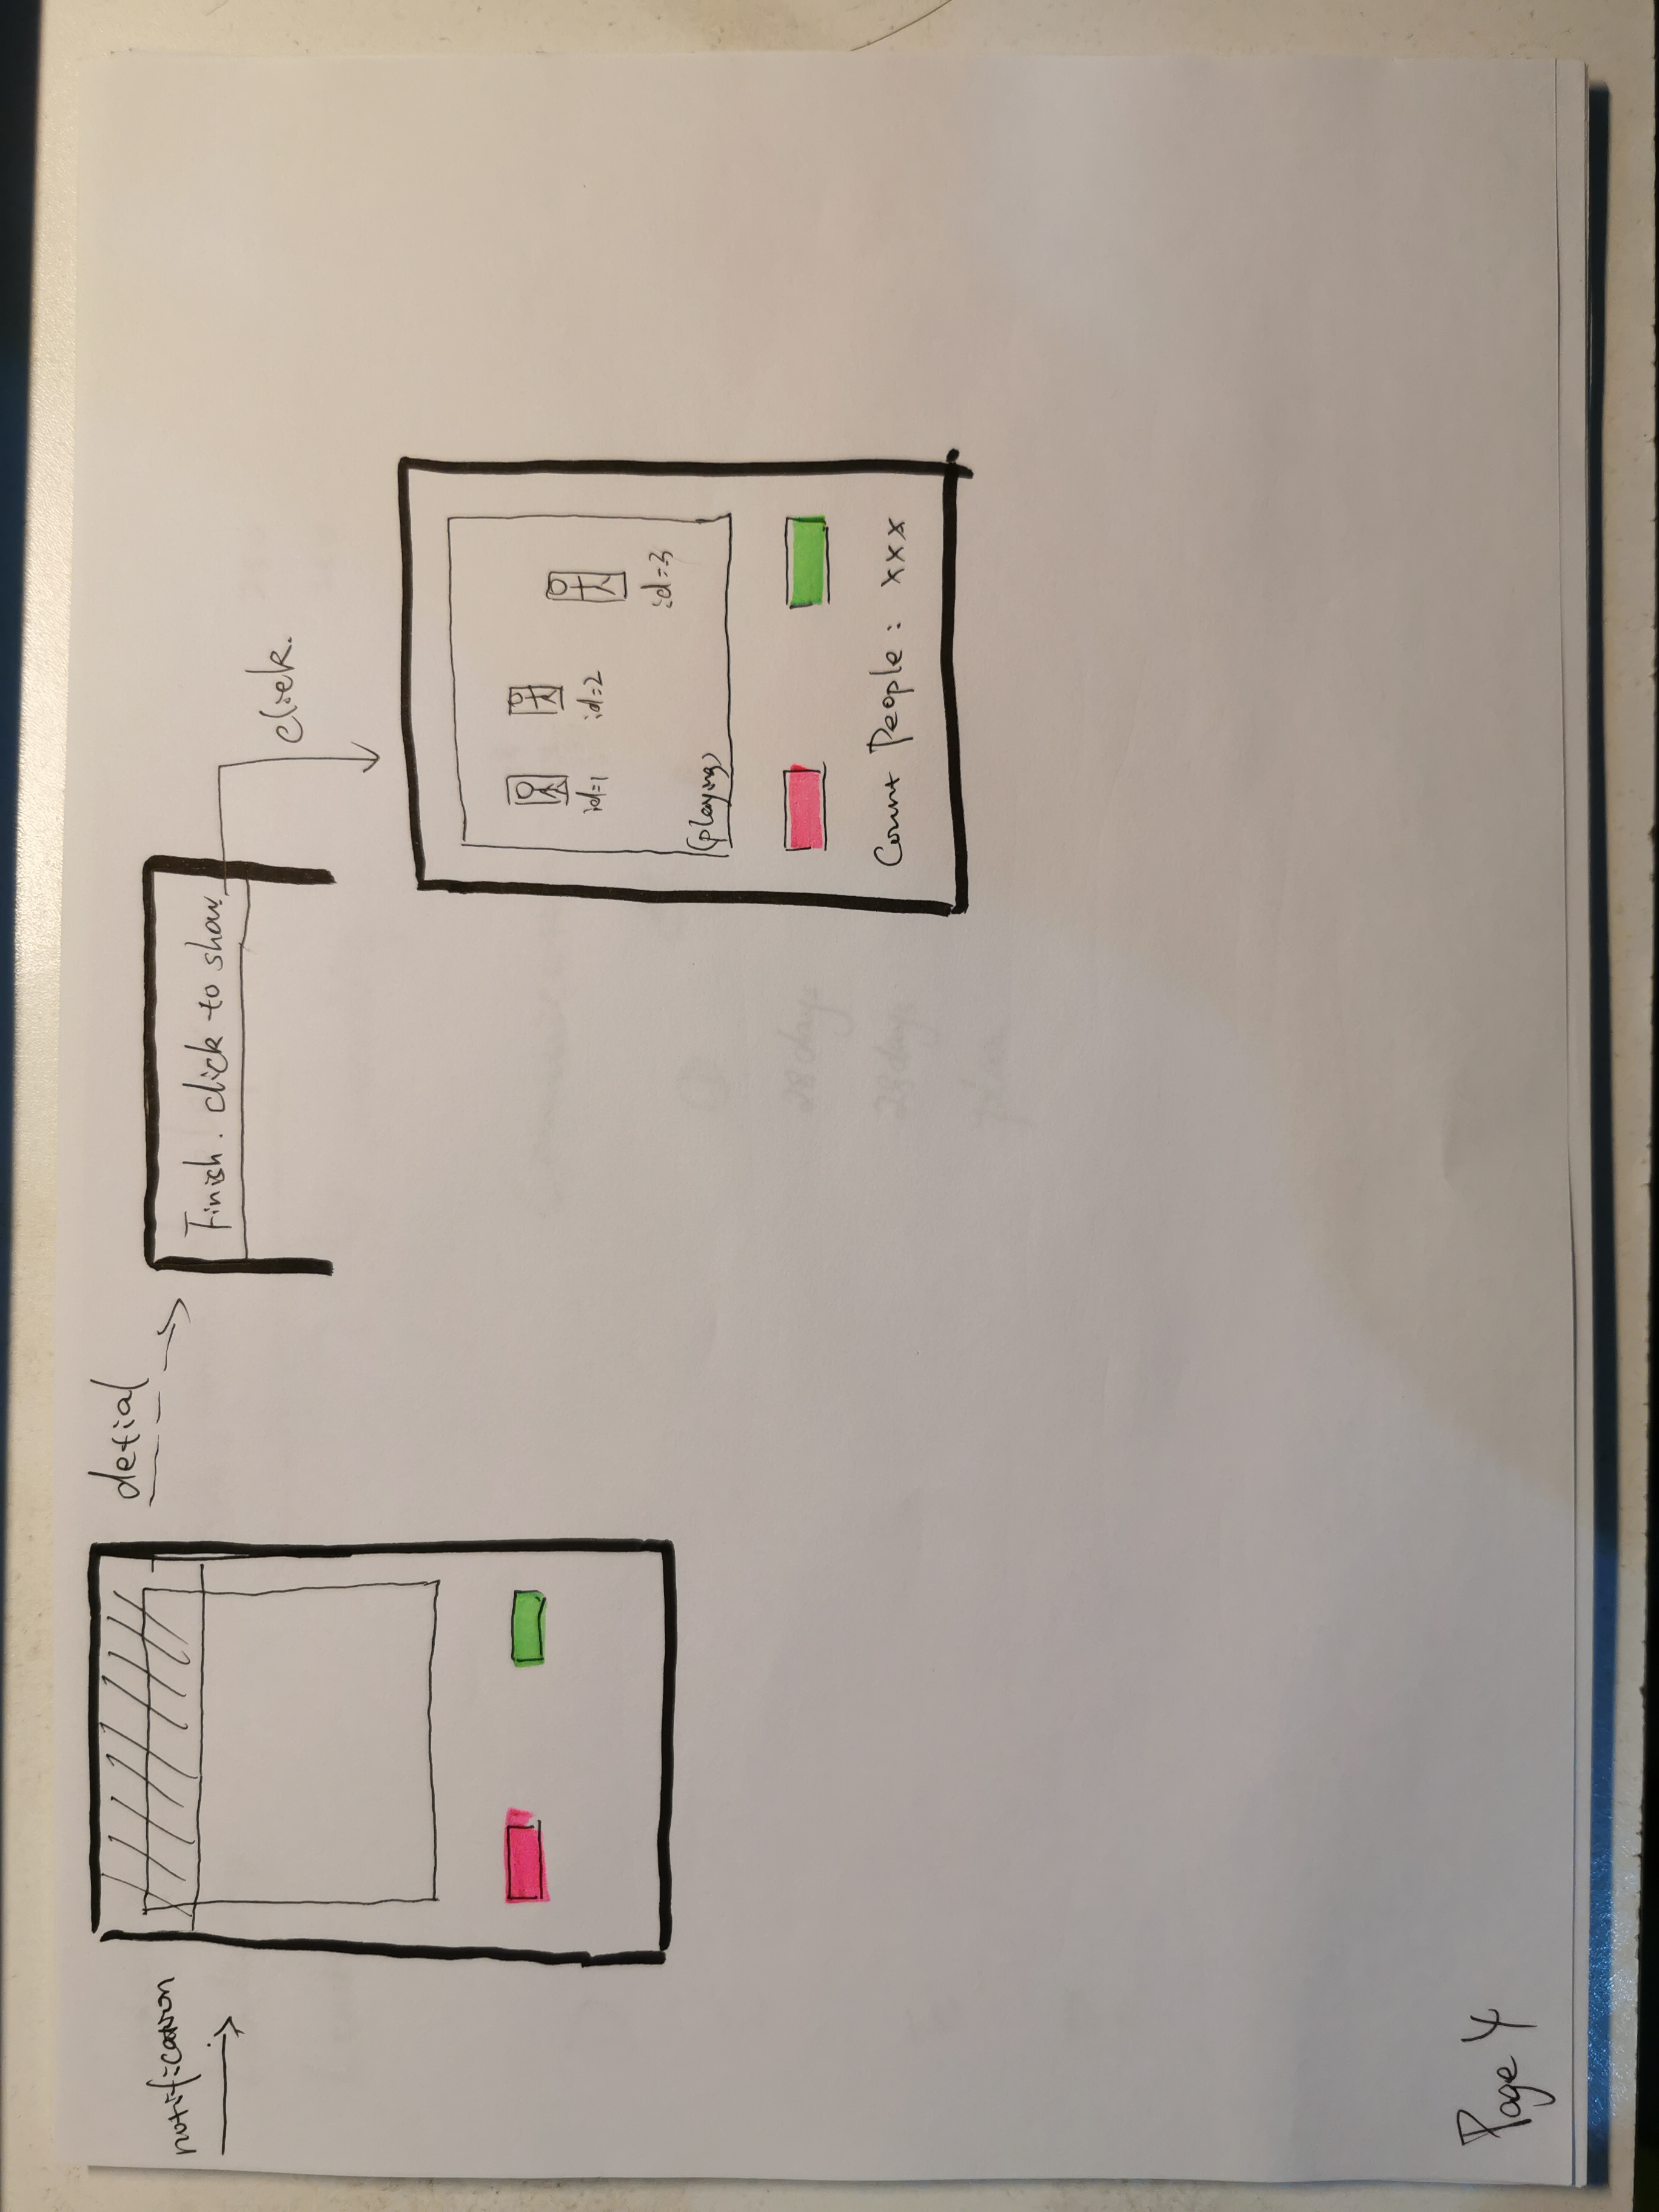 notification
detial
Finish. click to show.
click.
id=1
id=2
id=3
(playing)
Count People: xxx
28 days
29 days
Page 4